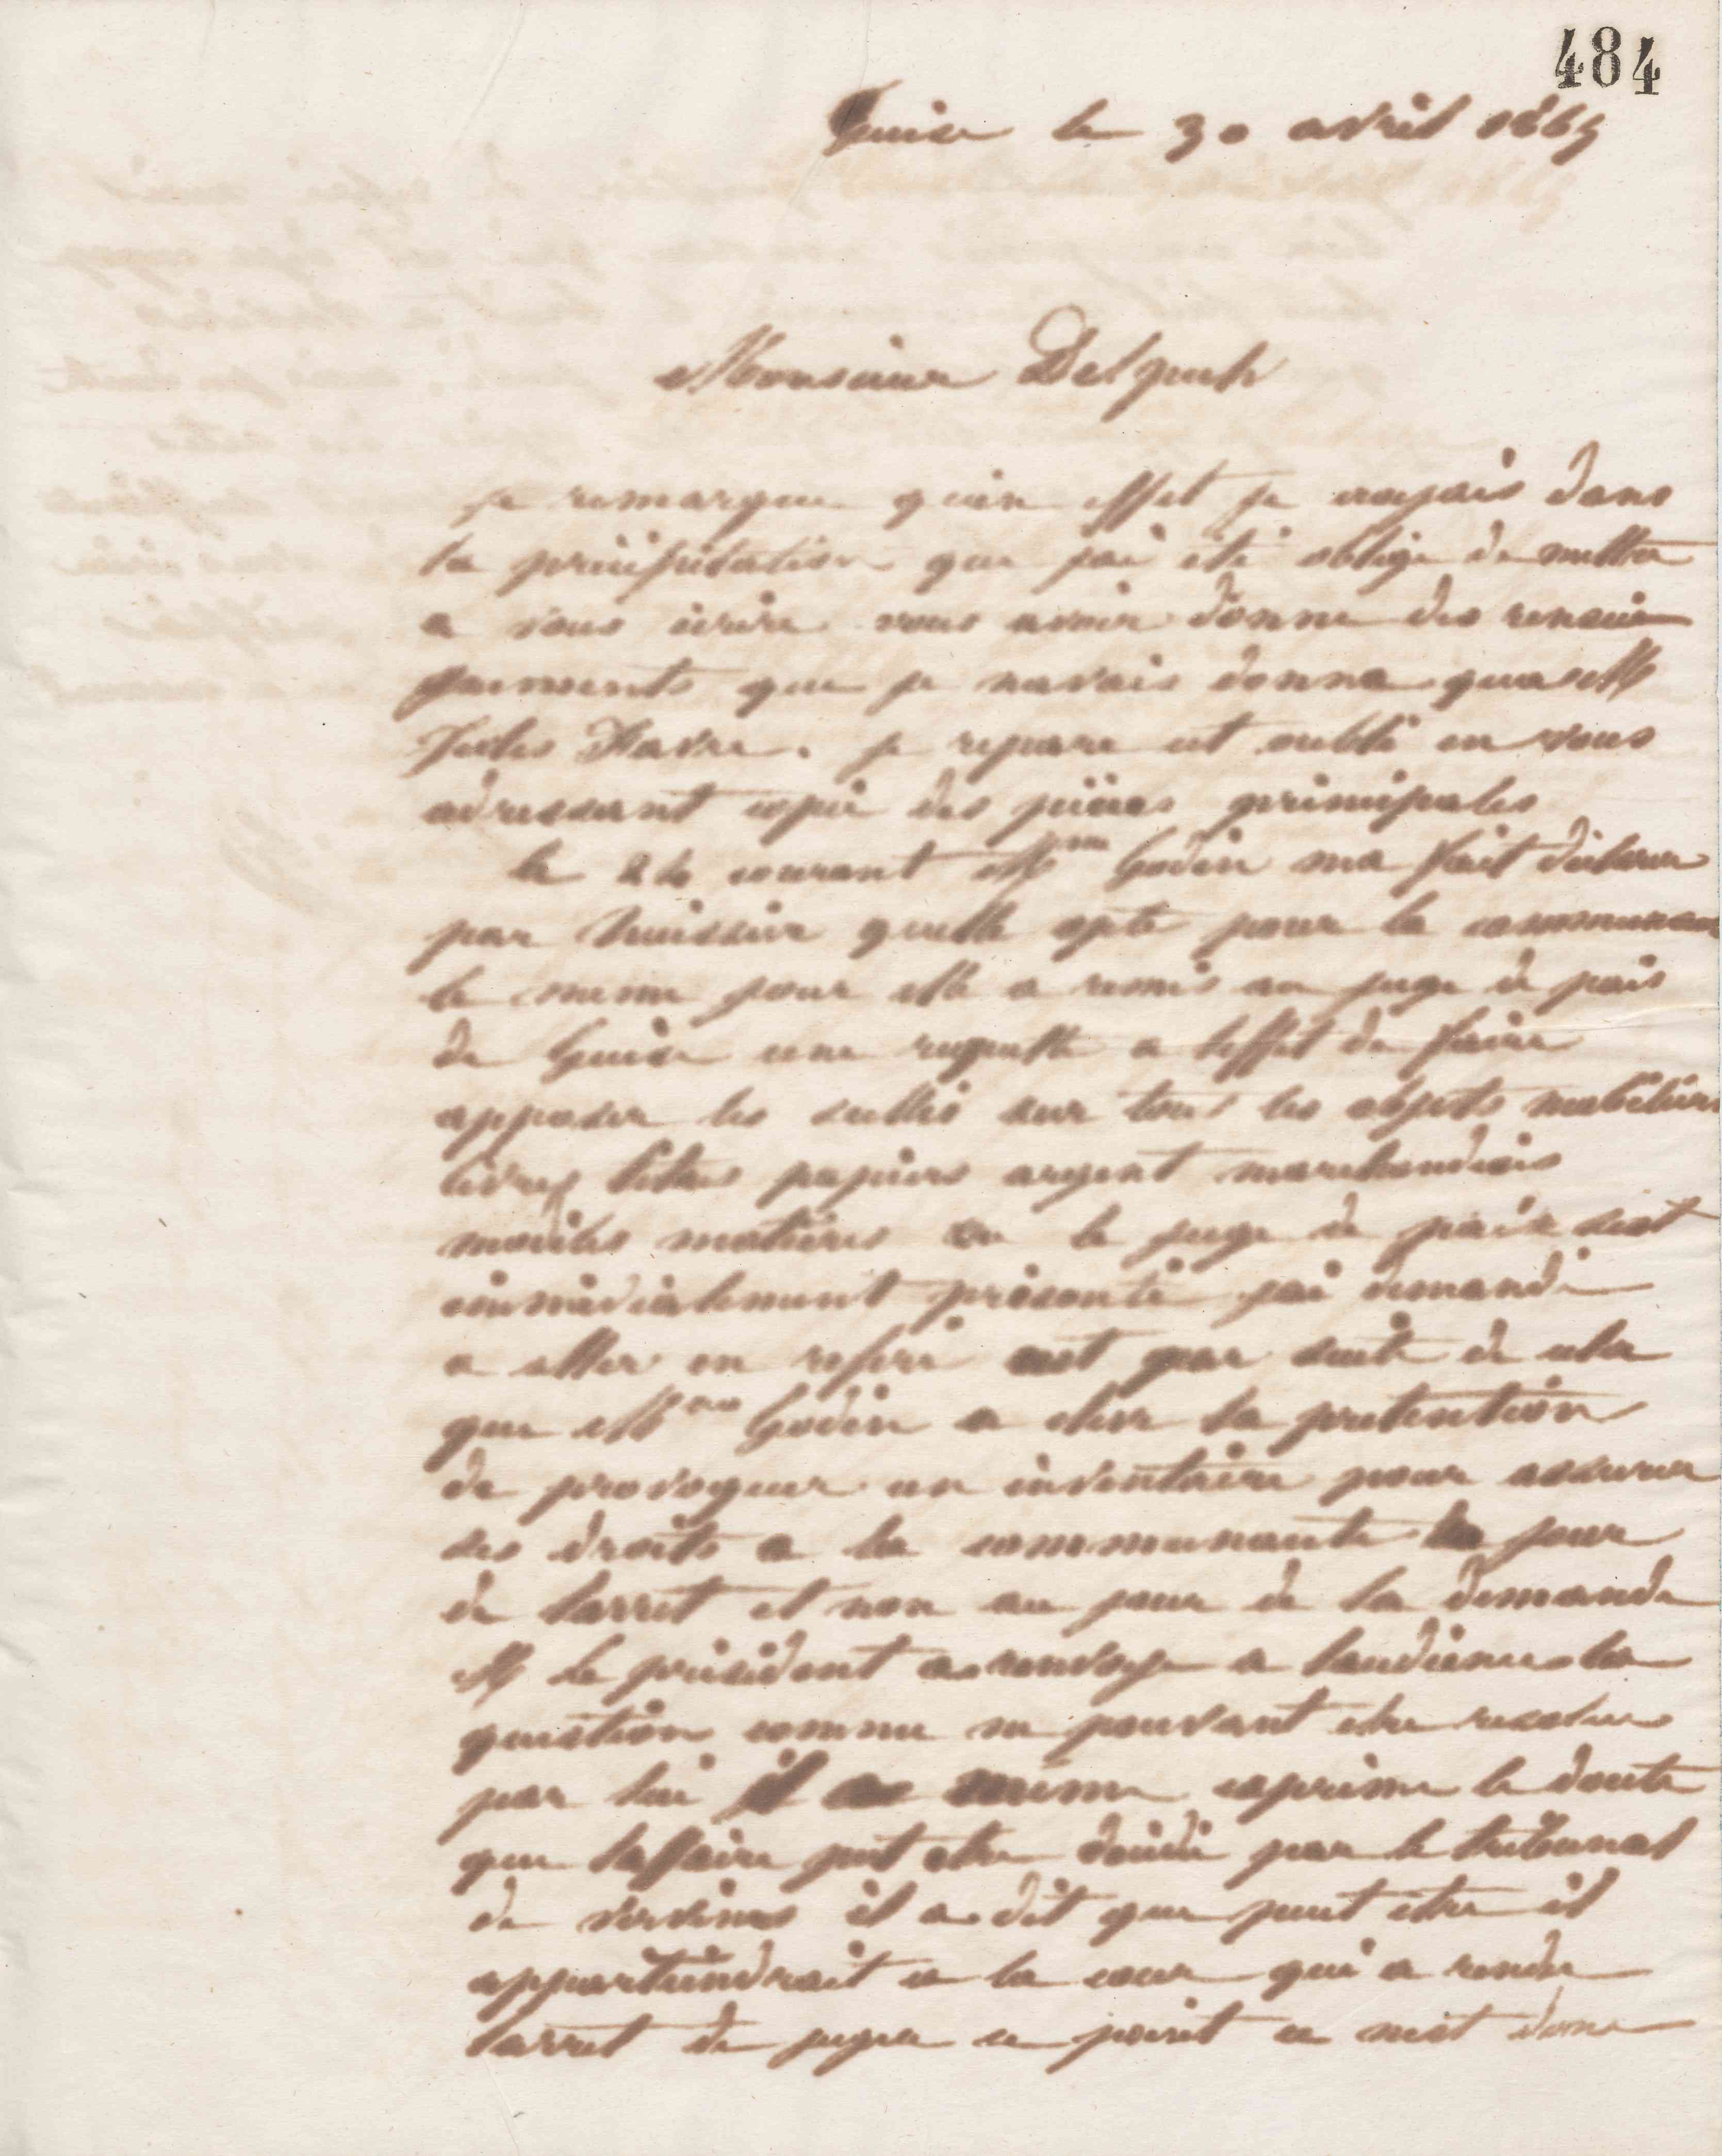 484
Guise le 30 avril 1865
Monsieur Delpech
je remarque quen effet je croyais dans
la précipitation que jai été obligé de mettre
a vous écrire vous avoir donne des rensei
gnements que je navais donne qua M
Jules Favre. je repare cet oubli en vous
adressant copie des pièces principales
le 24 courant Mme Godin ma fait déclarer
par huissier quelle opte pour la communau
le meme jour elle a remis au juge de paix
de Guise une requette a leffet de faire
apposer les scellés sur tous les objets mobiliers
livres titres papiers argent marchandises
modèles matières le juge de paix sest
immédiatement présenté jai demandé
a aller en reféré cest par suite de cela
que Mme Godin a élevé la prétention
de provoquer un inventaire pour assurer
ses droits a la communauté jour
de larret et non au jour de la demande
M le président a renvoye a laudience la
question comme ne pouvant etre resolue
par lui il a meme exprime le doute
que laffaire put etre décidé par le tribunal
de vervins il a dit que peut etre il
appartiendrait a la cour qui a rendu
larret de juger ce point ce nest donc